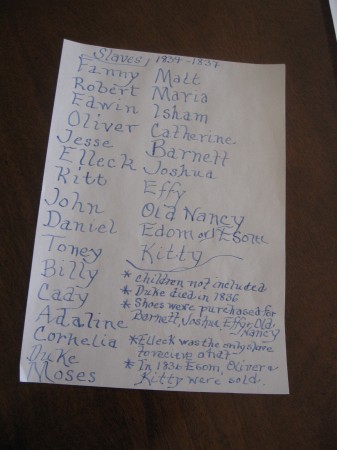 Slaves, 1834-1837
Fanny Malt
Robert Maria
Edwin Isham
Oliver Catherine
Jesse Barnett
Elleck Joshua
Ritt Effy
John Old Nancy
Daniel Edom or Esom
Toney Kitty
Billy
Cady
Adaline
Cornelia
Duke
Moses
* Children not included
* Duke died in 1836
* Shoes were purchased for
Barnett, Joshua, Effy, Old
Nancy
* Elleck was the only slave
to receive a hat
* In 1836 Esom, Oliver &
Kitty were sold.